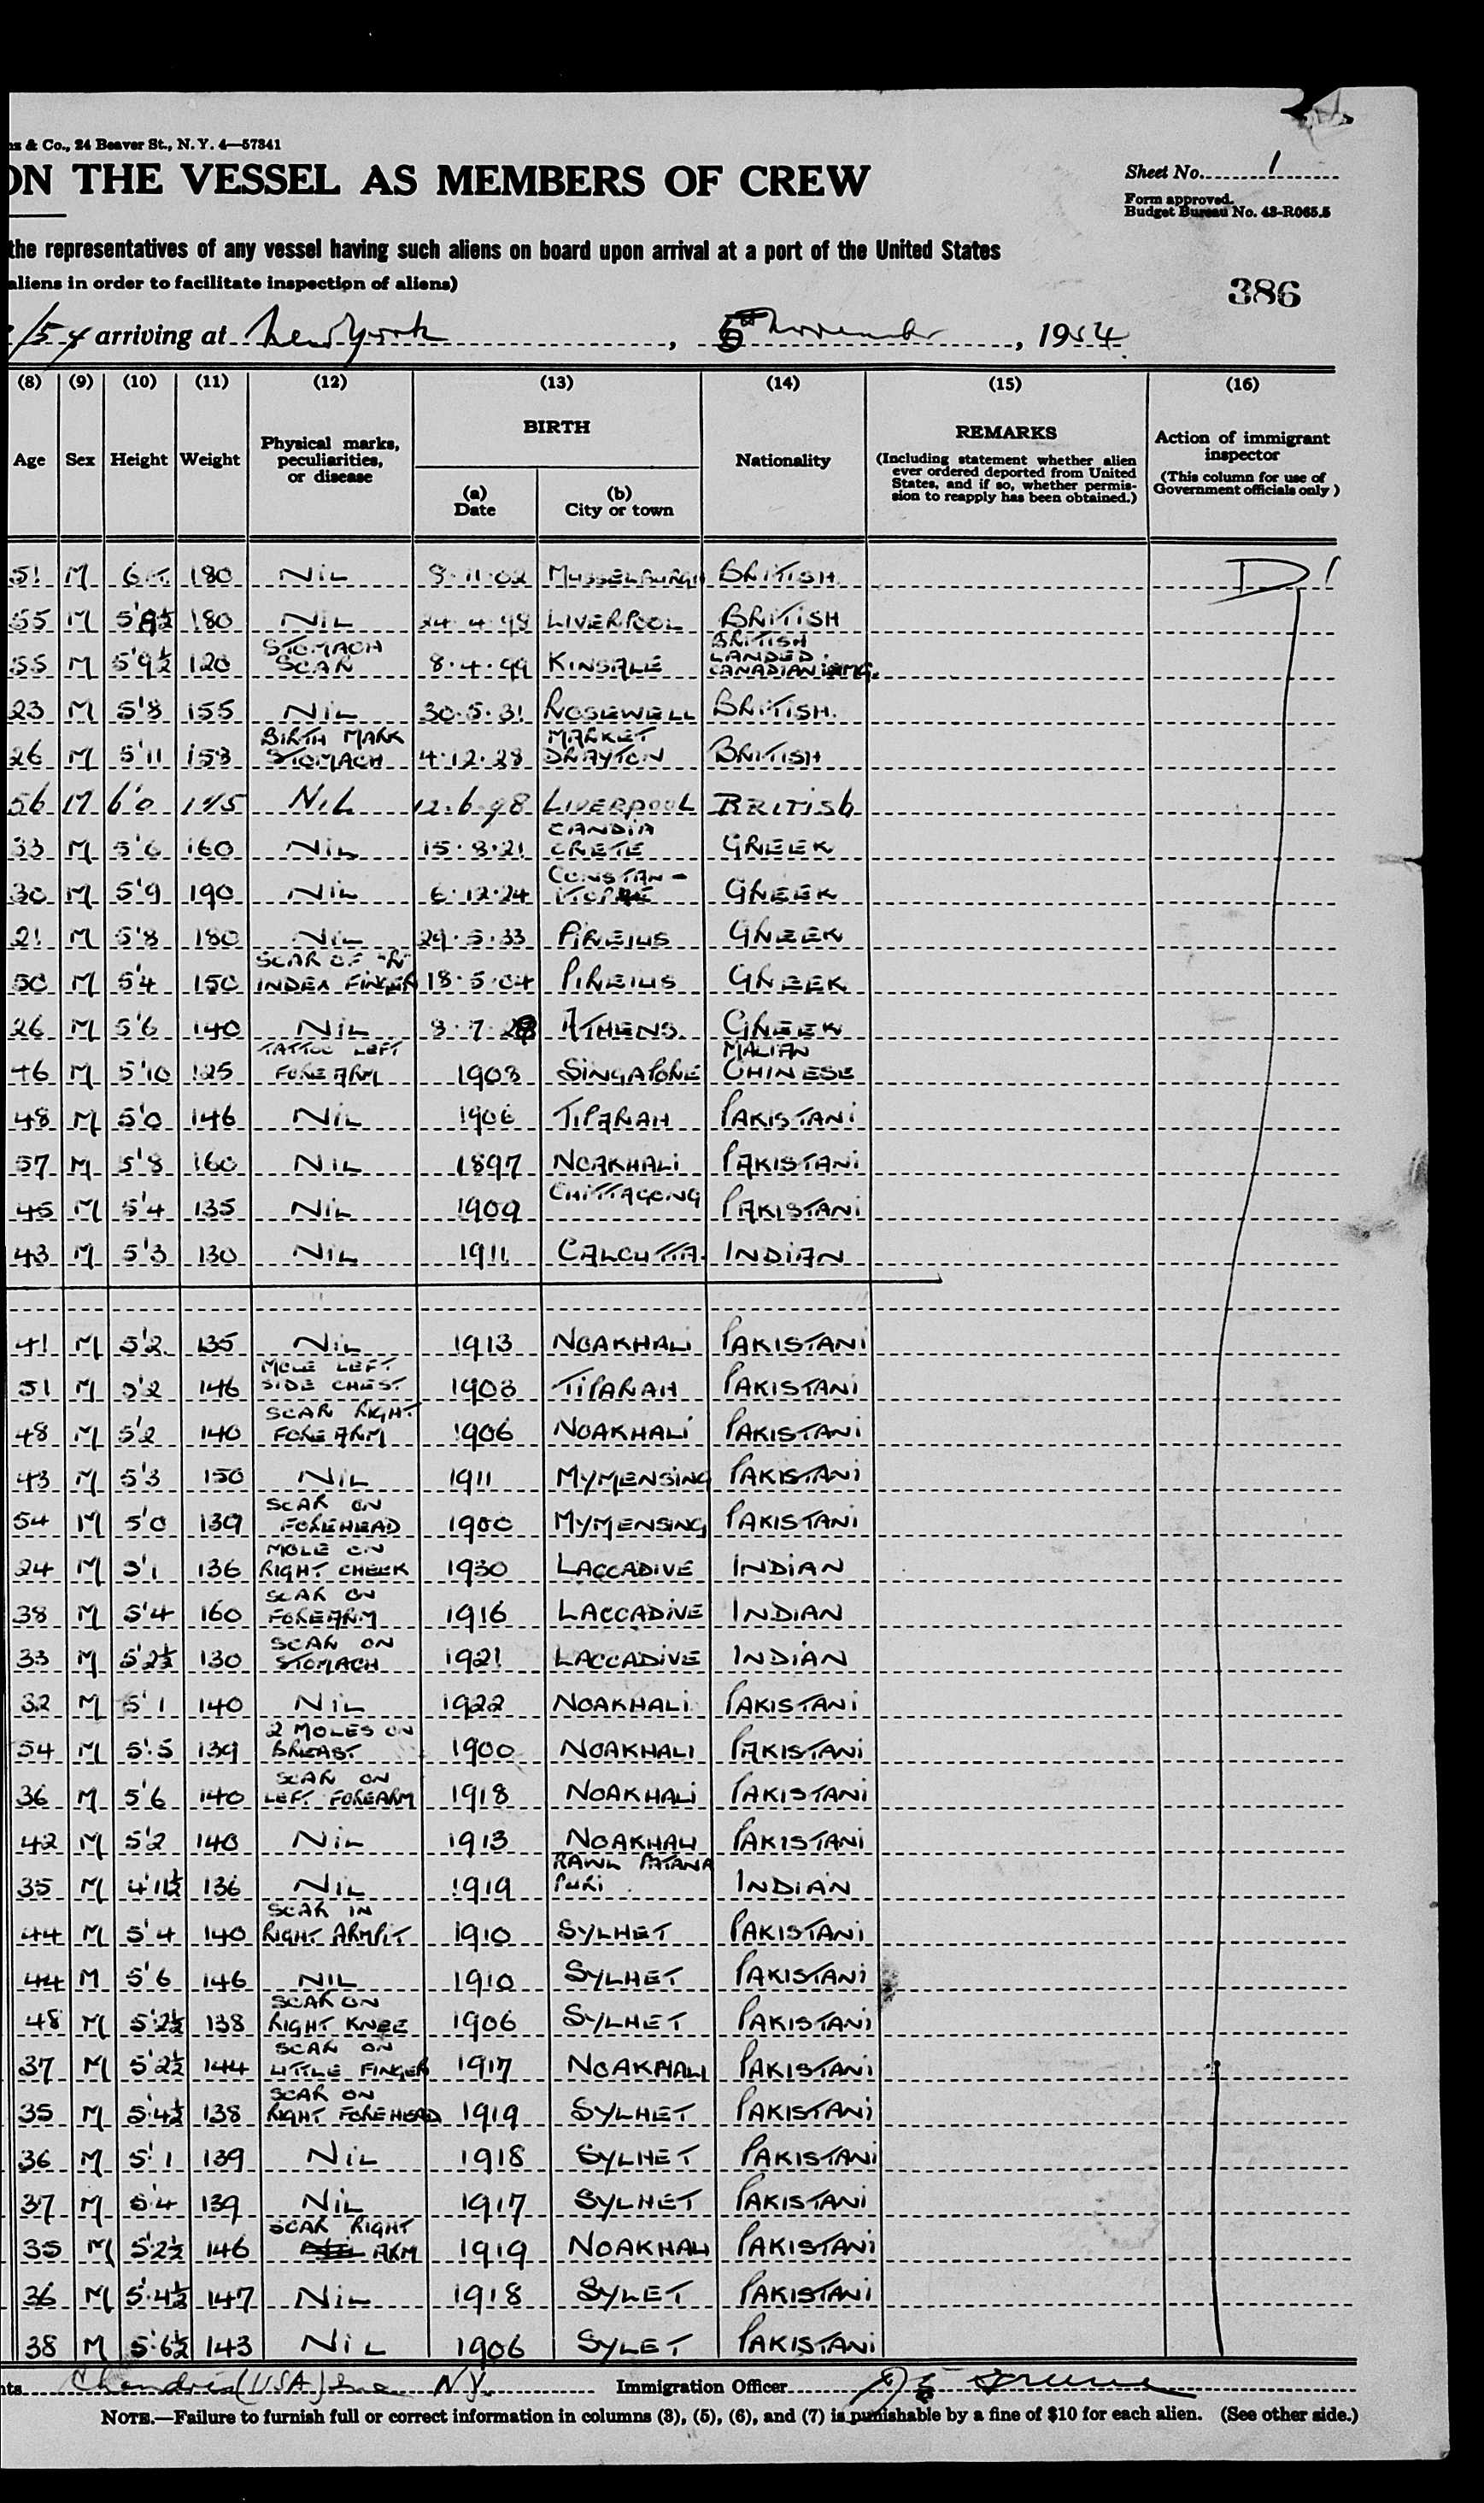 ns & Co., 24 Beaver St., N. Y. 4—57341
ON THE VESSEL AS MEMBERS OF CREW
Sheet No. 1
Form approved.
Budget Bureau No. 43-R065.5
the representatives of any vessel having such aliens on board upon arrival at a port of the United States
aliens in order to facilitate inspection of aliens)
386
/54 arriving at New York, 5th November, 1954
(8) (9) (10) (11) (12) (13) (14) (15) (16)
Age Sex Height Weight Physical marks, peculiarities, or disease BIRTH (a) Date (b) City or town Nationality REMARKS (Including statement whether alien ever ordered deported from United States, and if so, whether permission to reapply has been obtained.) Action of immigrant inspector (This column for use of Government officials only)
51 M 180 NIL 8.11.02 MUSSELBURGH BRITISH D1
55 M 5'8½ 180 NIL 24.4.98 LIVERPOOL BRITISH
55 M 5'9½ 120 STOMACH SCAR 8.4.99 KINSALE BRITISH LANDED CANADIAN
23 M 5'8 155 NIL 30.5.31 ROSEWELL BRITISH
26 M 5'11 158 BIRTH MARK STOMACH 4.12.28 MARKET DRAYTON BRITISH
56 M 6'0 NIL 12.6.98 LIVERPOOL BRITISH
33 M 5'6 160 NIL 15.8.21 CANDIA CRETE GREEK
30 M 5'9 190 NIL 6.12.24 GREEK
21 M 5'8 180 NIL 29.5.33 PIREIUS GREEK
50 M 5'4 150 SCAR OF "R" INDEX FINGER 18.5.04 PIREIUS GREEK
26 M 5'6 140 NIL 8.7.28 ATHENS GREEK
46 M 5'10 125 TATTOO LEFT FOREARM 1908 SINGAPORE MALIAN CHINESE
48 M 5'0 146 NIL 1906 TIPARAH PAKISTANI
57 M 5'8 160 NIL 1897 NOAKHALI PAKISTANI
45 M 5'4 135 NIL 1909 CHITTAGONG PAKISTANI
43 M 5'3 130 NIL 1911 CALCUTTA. INDIAN
41 M 5'2 135 NIL 1913 NOAKHALI PAKISTANI
51 M 5'2 146 MOLE LEFT SIDE CHEST 1903 TIPARAH PAKISTANI
48 M 5'2 140 SCAR RIGHT FOREARM 1906 NOAKHALI PAKISTANI
43 M 5'3 150 NIL 1911 MYMENSING PAKISTANI
54 M 5'0 139 SCAR ON FOREHEAD 1900 MYMENSING PAKISTANI
24 M 5'1 136 MOLE ON RIGHT CHEEK 1930 LACCADIVE INDIAN
38 M 5'4 160 SCAR ON FOREARM 1916 LACCADIVE INDIAN
33 M 5'2½ 130 SCAR ON STOMACH 1921 LACCADIVE INDIAN
32 M 5'1 140 NIL 1922 NOAKHALI PAKISTANI
54 M 5'5 139 2 MOLES ON BREAST 1900 NOAKHALI PAKISTANI
36 M 5'6 140 SCAR ON LEFT FOREARM 1918 NOAKHALI PAKISTANI
42 M 5'2 140 NIL 1913 NOAKHALI PAKISTANI
35 M 4'11½ 136 NIL 1919 RAWL PATANA PURI INDIAN
44 M 5'4 140 SCAR IN RIGHT ARMPIT 1910 SYLHET PAKISTANI
44 M 5'6 146 NIL 1910 SYLHET PAKISTANI
48 M 5'2½ 138 SCAR ON RIGHT KNEE 1906 SYLHET PAKISTANI
37 M 5'2½ 144 SCAR ON LITTLE FINGER 1917 NOAKHALI PAKISTANI
35 M 5'4½ 138 SCAR ON RIGHT FOREHEAD 1919 SYLHET PAKISTANI
36 M 5'1 139 NIL 1918 SYLHET PAKISTANI
37 M 5'4 139 NIL 1917 SYLHET PAKISTANI
35 M 5'2½ 146 SCAR RIGHT ARM 1919 NOAKHALI PAKISTANI
36 M 5'4½ 147 NIL 1918 SYLET PAKISTANI
38 M 5'6½ 143 NIL 1906 SYLET PAKISTANI
nts Chandris (USA) Inc N.Y. Immigration Officer
NOTE.—Failure to furnish full or correct information in columns (3), (5), (6), and (7) is punishable by a fine of $10 for each alien. (See other side.)